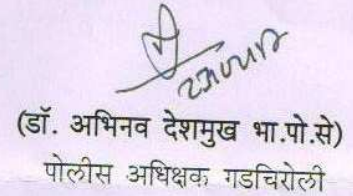 (डॉ. अभिनव देशमुख भा.पो.से)
पोलीस अधिक्षक गडचिरोली